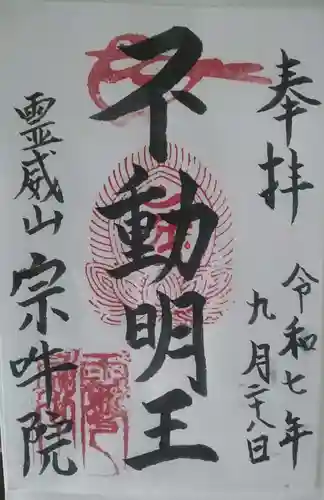 奉拝
令和七年
九月二十八日
不動明王
霊威山
宗吽院